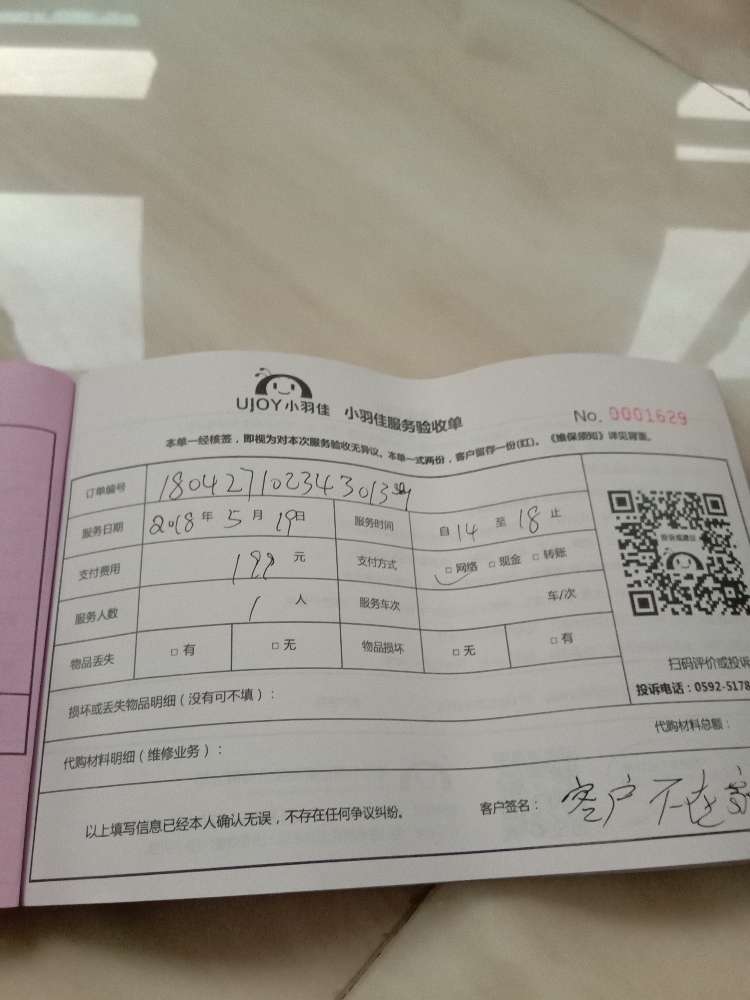 UJOY小羽佳 小羽佳服务验收单 No. 0001629
本单一经核签，即视为对本次服务验收无异议。本单一式两份，客户留存一份(红)。《维保须知》详见背面。
订单编号 180427102343013
服务日期 2018年5月19日 服务时间 自14至18止
支付费用 199元 支付方式 □网络 □现金 □转账
服务人数 1人 服务车次 车/次
物品丢失 □有 □无 物品损坏 □无 □有
扫码评价或投诉
投诉电话：0592-5178
损坏或丢失物品明细（没有可不填）：
代购材料明细（维修业务）： 代购材料总额：
以上填写信息已经本人确认无误，不存在任何争议纠纷。 客户签名：客户不在家